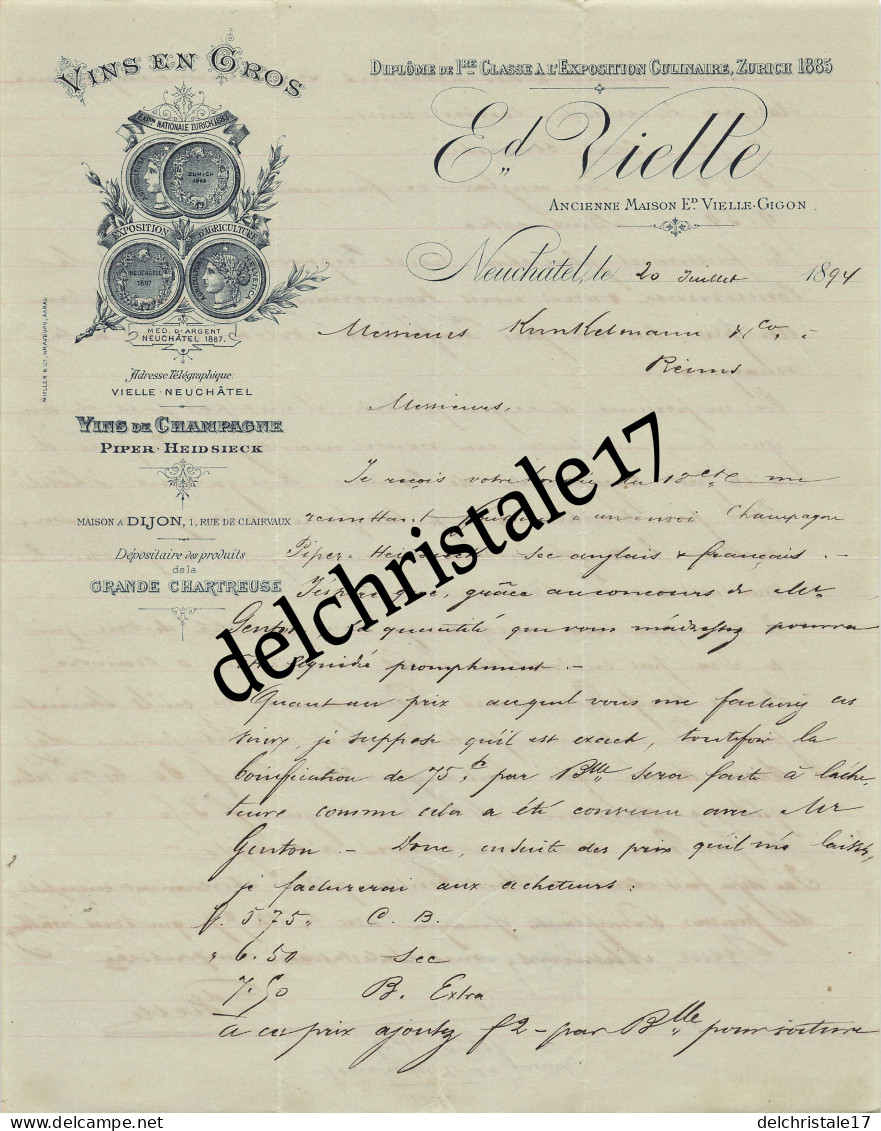 VINS EN GROS
EXPON NATIONALE ZURICH 1883
ZURICH
1883
EXPOSITION D'AGRICULTURE
NEUCHÂTEL
1887
MED. D'ARGENT
NEUCHÂTEL 1887.
MULLER & Cie, GRAVEURS, AARAU
Adresse Télégraphique:
VIELLE-NEUCHÂTEL
VINS DE CHAMPAGNE
PIPER-HEIDSIECK
MAISON A DIJON, 1, RUE DE CLAIRVAUX
Dépositaire des produits
de la
GRANDE CHARTREUSE
DIPLÔME DE 1RE CLASSE À L'EXPOSITION CULINAIRE, ZURICH 1885
Ed. Vielle
ANCIENNE MAISON ED. VIELLE-GIGON
Neuchâtel, le 20 Juillet 1894
Messieurs Kunkelmann & Co,
Reims
Messieurs,
Je reçois votre du 18 ct me
remettant a un envoi Champagne
Piper-Heidsieck sec anglais & français. —
J'espère que, grâce au concours de Mr
Genton la quantité que vous m'adressez pourra
être liquidée promptement. —
Quant au prix auquel vous me facturez ces
vins, je suppose qu'il est exact, toutefois la
bonification de 75 c par Blle sera faite à l'ache-
teur comme cela a été convenu avec Mr
Genton. — Donc, ensuite des prix qu'il m'a laissés,
je facturerai aux acheteurs:
f. 5.75 C. B.
" 6.50 Sec
7.50 B. Extra
A ces prix ajoutez f 2 - par Blle pour voiture
delchristale17
delcampe.net
delchristale17